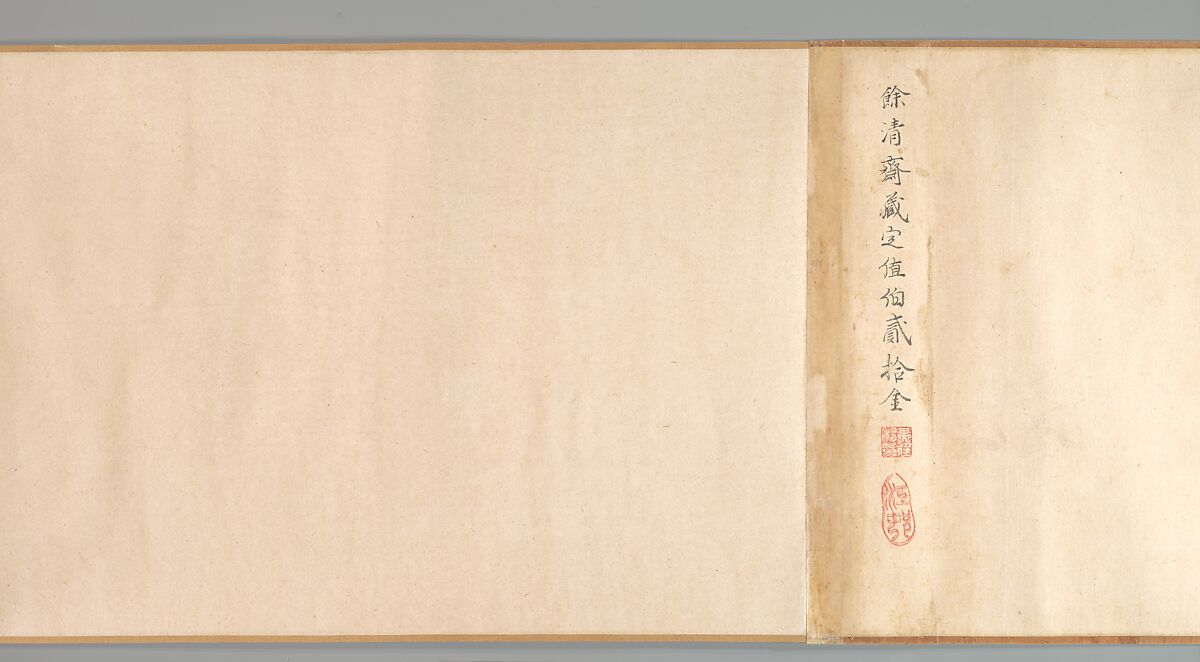 餘清齋藏定值伯貳拾金